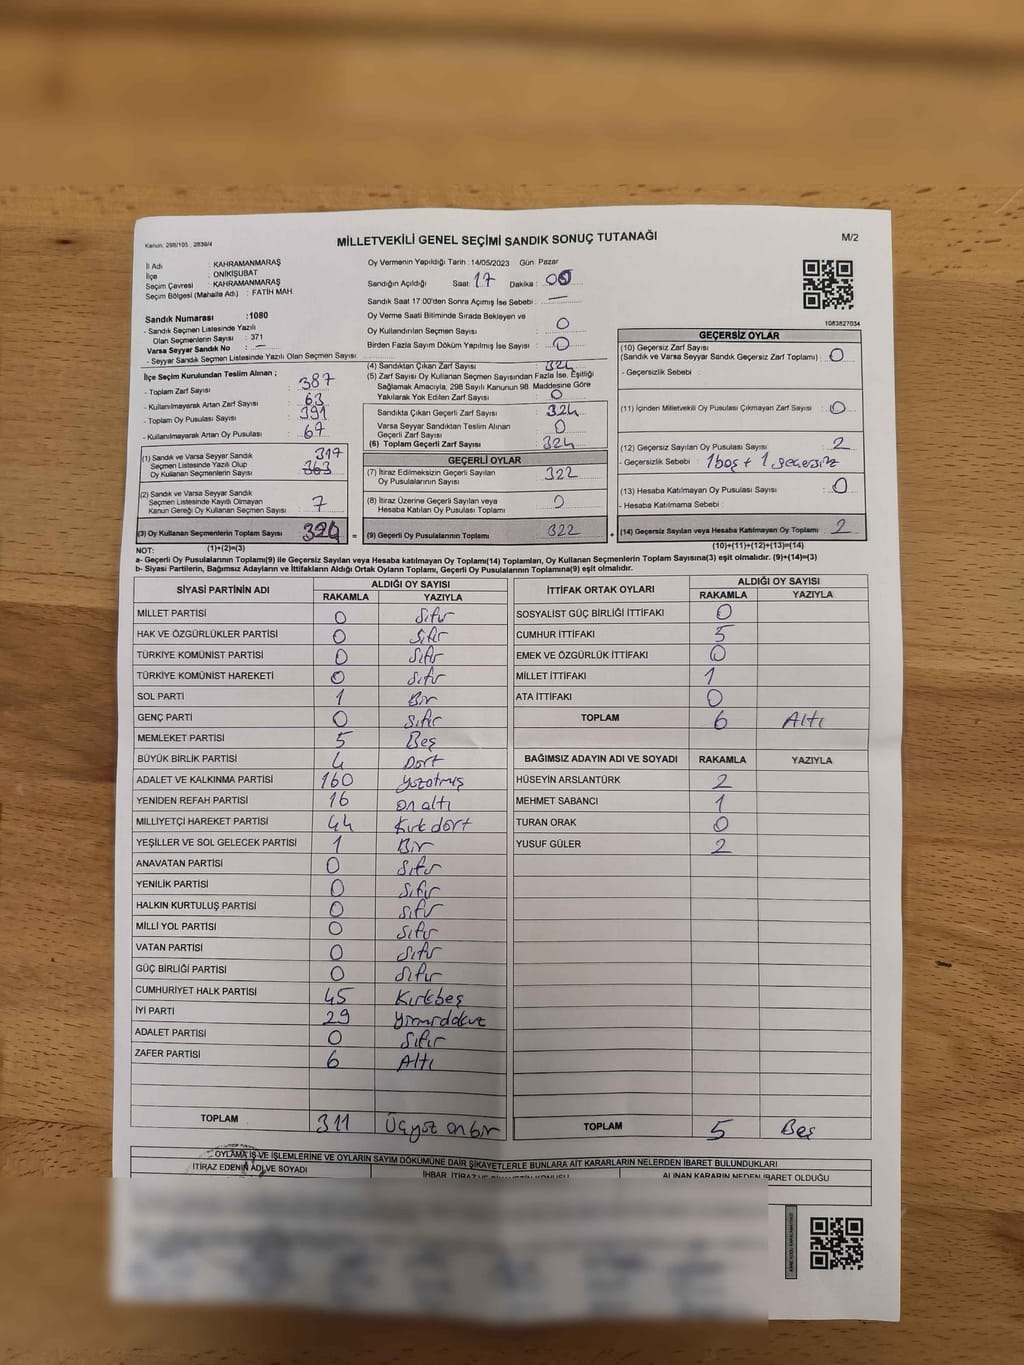 Kanun: 298/105 , 2839/4
MİLLETVEKİLİ GENEL SEÇİMİ SANDIK SONUÇ TUTANAĞI
M/2
İl Adı : KAHRAMANMARAŞ
İlçe : ONİKİŞUBAT
Seçim Çevresi : KAHRAMANMARAŞ
Seçim Bölgesi (Mahalle Adı) : FATİH MAH.
Sandık Numarası : 1080
- Sandık Seçmen Listesinde Yazılı
Olan Seçmenlerin Sayısı : 371
Varsa Seyyar Sandık No : —
- Seyyar Sandık Seçmen Listesinde Yazılı Olan Seçmen Sayısı:
Oy Vermenin Yapıldığı Tarih : 14/05/2023 Gün: Pazar
Sandığın Açıldığı Saat: 17 Dakika :
Sandık Saat 17:00'den Sonra Açımış İse Sebebi : —
Oy Verme Saati Bitiminde Sırada Bekleyen ve
Oy Kullandırılan Seçmen Sayısı : 0
Birden Fazla Sayım Döküm Yapılmış İse Sayısı : 0
1083827034
İlçe Seçim Kurulundan Teslim Alınan ;
- Toplam Zarf Sayısı : 387
- Kullanılmayarak Artan Zarf Sayısı : 63
- Toplam Oy Pusulası Sayısı : 391
- Kullanılmayarak Artan Oy Pusulası : 67
(1) Sandık ve Varsa Seyyar Sandık
Seçmen Listesinde Yazılı Olup
Oy Kullanan Seçmenlerin Sayısı 317
363
(2) Sandık ve Varsa Seyyar Sandık
Seçmen Listesinde Kayıtlı Olmayan
Kanun Gereği Oy Kullanan Seçmen Sayısı 7
(3) Oy Kullanan Seçmenlerin Toplam Sayısı 324 =
(1)+(2)=(3)
(4) Sandıktan Çıkan Zarf Sayısı 324
(5) Zarf Sayısı Oy Kullanan Seçmen Sayısından Fazla İse, Eşitliği
Sağlamak Amacıyla, 298 Sayılı Kanunun 98. Maddesine Göre
Yakılarak Yok Edilen Zarf Sayısı : 0
Sandıkta Çıkan Geçerli Zarf Sayısı : 324
Varsa Seyyar Sandıktan Teslim Alınan
Geçerli Zarf Sayısı : 0
(6) Toplam Geçerli Zarf Sayısı : 324
GEÇERLİ OYLAR
(7) İtiraz Edilmeksizin Geçerli Sayılan
Oy Pusulalarının Sayısı : 322
(8) İtiraz Üzerine Geçerli Sayılan veya
Hesaba Katılan Oy Pusulası Toplamı : 0
(9) Geçerli Oy Pusulalarının Toplamı 322 +
GEÇERSİZ OYLAR
(10) Geçersiz Zarf Sayısı
(Sandık ve Varsa Seyyar Sandık Geçersiz Zarf Toplamı) : 0
- Geçersizlik Sebebi :
(11) İçinden Milletvekili Oy Pusulası Çıkmayan Zarf Sayısı : 0
(12) Geçersiz Sayılan Oy Pusulası Sayısı : 2
- Geçersizlik Sebebi : 1 boş + 1 geçersiz
(13) Hesaba Katılmayan Oy Pusulası Sayısı : 0
- Hesaba Katılmama Sebebi :
(14) Geçersiz Sayılan veya Hesaba Katılmayan Oy Toplamı : 2
(10)+(11)+(12)+(13)=(14)
NOT:
a- Geçerli Oy Pusulalarının Toplamı(9) ile Geçersiz Sayılan veya Hesaba katılmayan Oy Toplamı(14) Toplamları, Oy Kullanan Seçmenlerin Toplam Sayısına(3) eşit olmalıdır. (9)+(14)=(3)
b- Siyasi Partilerin, Bağımsız Adayların ve İttifakların Aldığı Ortak Oyların Toplamı, Geçerli Oy Pusulalarının Toplamına(9) eşit olmalıdır.
SİYASİ PARTİNİN ADI ALDIĞI OY SAYISI
RAKAMLA YAZIYLA
MİLLET PARTİSİ 0 Sıfır
HAK VE ÖZGÜRLÜKLER PARTİSİ 0 Sıfır
TÜRKİYE KOMÜNİST PARTİSİ 0 Sıfır
TÜRKİYE KOMÜNİST HAREKETİ 0 Sıfır
SOL PARTİ 1 Bir
GENÇ PARTİ 0 Sıfır
MEMLEKET PARTİSİ 5 Beş
BÜYÜK BİRLİK PARTİSİ 4 Dört
ADALET VE KALKINMA PARTİSİ 160 Yüzatmış
YENİDEN REFAH PARTİSİ 16 on altı
MİLLİYETÇİ HAREKET PARTİSİ 44 Kırk dört
YEŞİLLER VE SOL GELECEK PARTİSİ 1 Bir
ANAVATAN PARTİSİ 0 Sıfır
YENİLİK PARTİSİ 0 Sıfır
HALKIN KURTULUŞ PARTİSİ 0 Sıfır
MİLLİ YOL PARTİSİ 0 Sıfır
VATAN PARTİSİ 0 Sıfır
GÜÇ BİRLİĞİ PARTİSİ 0 Sıfır
CUMHURİYET HALK PARTİSİ 45 Kırkbeş
İYİ PARTİ 29 Yirmidokuz
ADALET PARTİSİ 0 Sıfır
ZAFER PARTİSİ 6 Altı
TOPLAM 311 Üçyüz onbir
İTTİFAK ORTAK OYLARI ALDIĞI OY SAYISI
RAKAMLA YAZIYLA
SOSYALİST GÜÇ BİRLİĞİ İTTİFAKI 0
CUMHUR İTTİFAKI 5
EMEK VE ÖZGÜRLÜK İTTİFAKI 0
MİLLET İTTİFAKI 1
ATA İTTİFAKI 0
TOPLAM 6 Altı
BAĞIMSIZ ADAYIN ADI VE SOYADI RAKAMLA YAZIYLA
HÜSEYİN ARSLANTÜRK 2
MEHMET SABANCI 1
TURAN ORAK 0
YUSUF GÜLER 2
TOPLAM 5 Beş
OYLAMA İŞ VE İŞLEMLERİNE VE OYLARIN SAYIM DÖKÜMÜNE DAİR ŞİKAYETLERLE BUNLARA AİT KARARLARIN NELERDEN İBARET BULUNDUKLARI
İTİRAZ EDENİN ADI VE SOYADI
ALINAN KARARIN NEDEN İBARET OLDUĞU